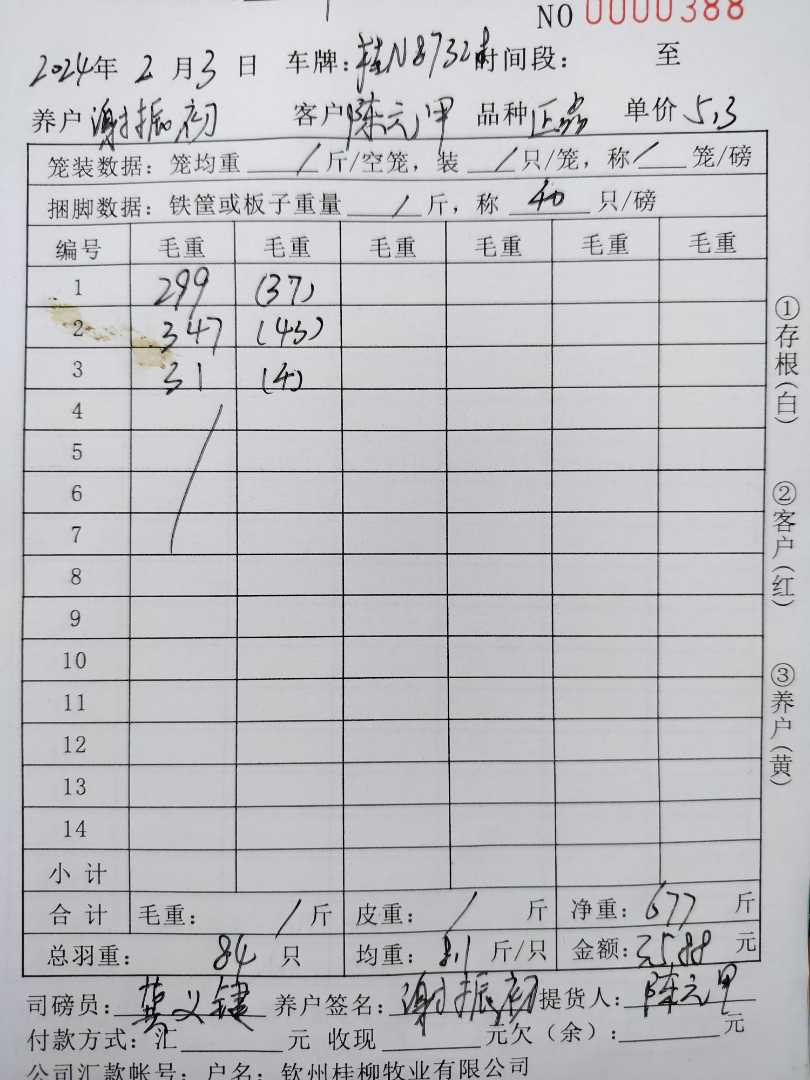 NO 0000388
2024年 2 月 3 日 车牌:桂N8732 时间段: 至
养户 谢振初 客户 陈元甲 品种 正 单价 5.3
笼装数据:笼均重 / 斤/空笼,装 / 只/笼,称 / 笼/磅
捆脚数据:铁筐或板子重量 / 斤,称 40 只/磅
编号 毛重 毛重 毛重 毛重 毛重 毛重
1 299 (37)
2 347 (43)
3 31 (4)
4
5
6
7
8
9
10
11
12
13
14
小计
合计 毛重: / 斤 皮重: / 斤 净重: 677 斤
总羽重: 84 只 均重: 8.1 斤/只 金额: 3588 元
司磅员: 黄义键 养户签名: 谢振初 提货人: 陈元甲
付款方式:汇 元 收现 元欠(余): 元
公司汇款帐号:户名:钦州桂柳牧业有限公司
①存根(白)
②客户(红)
③养户(黄)